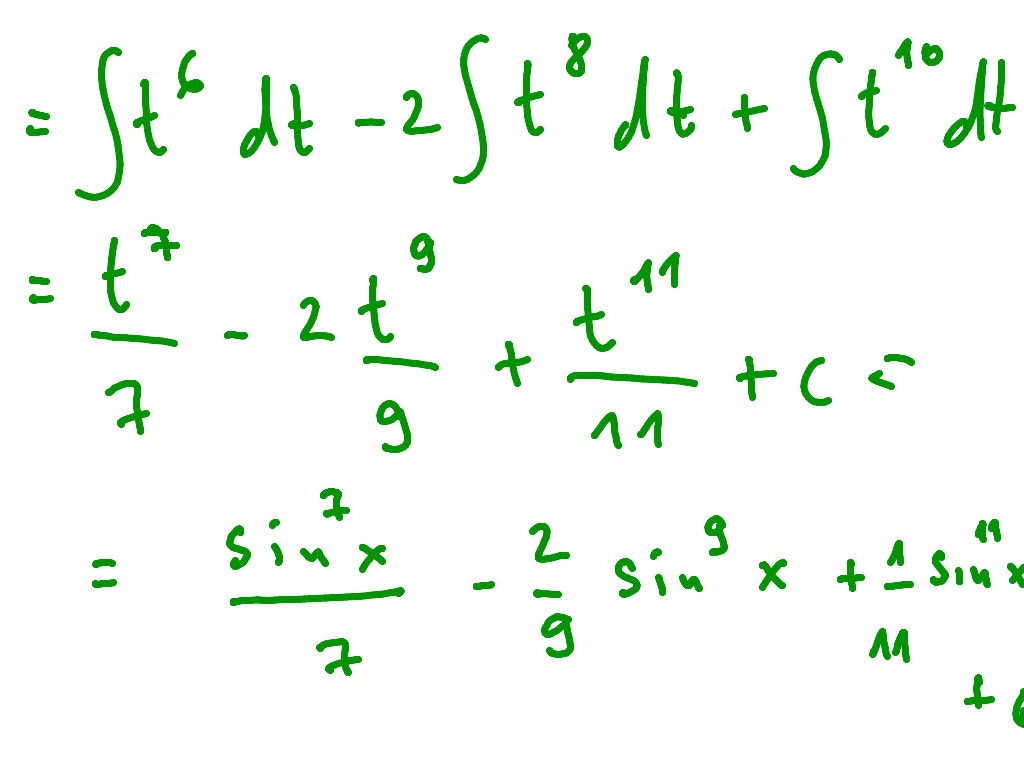 = ∫ t⁶ dt - 2 ∫ t⁸ dt + ∫ t¹⁰ dt
= t⁷/7 - 2 t⁹/9 + t¹¹/11 + C =
= sin⁷ x/7 - 2/9 sin⁹ x + 1/11 sin¹¹ x
+ C